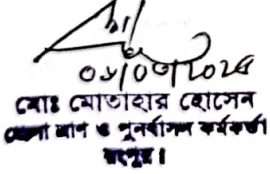 ০৬/০৩/২০২৪
মোঃ মোতাহার হোসেন
জেলা ত্রাণ ও পুনর্বাসন কর্মকর্তা
রংপুর।